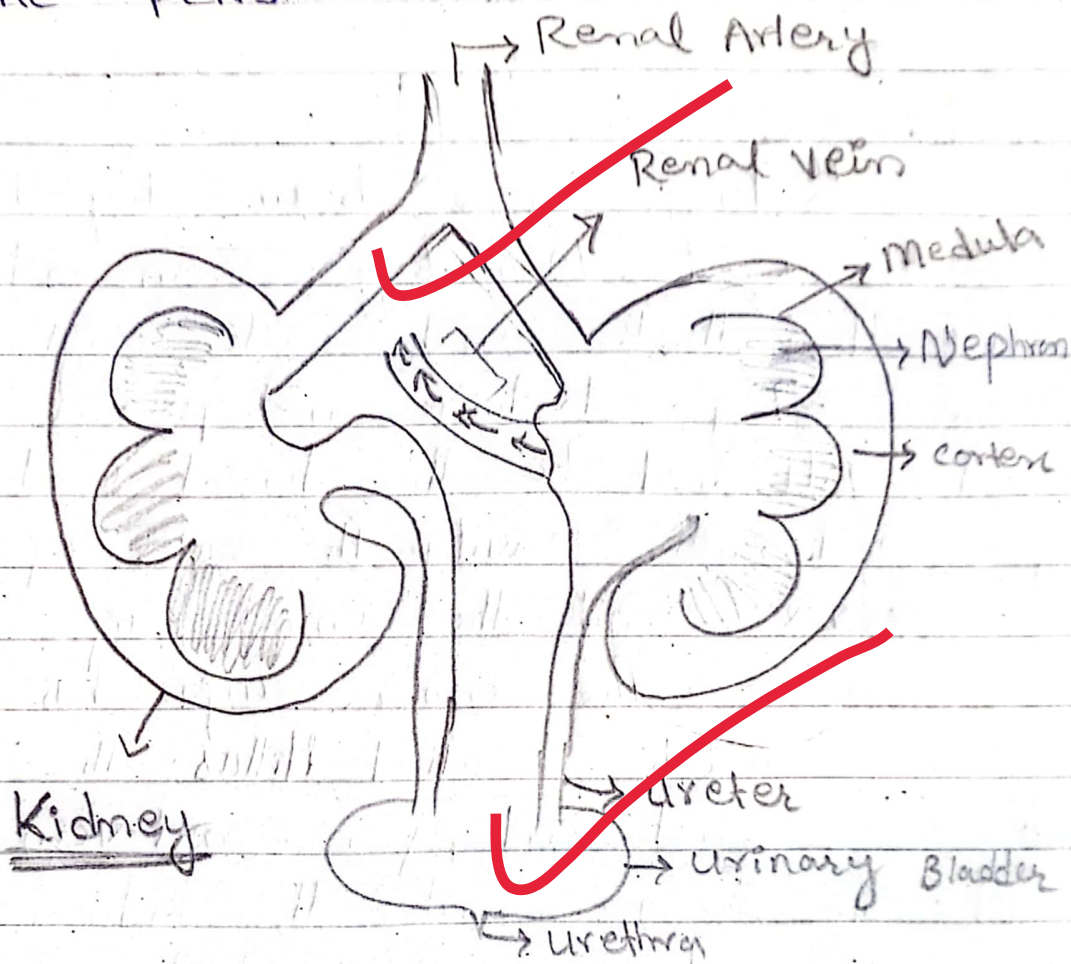 Renal Artery
Renal Vein
Medula
Nephron
Cortex
Kidney
Ureter
Urinary Bladder
Urethra